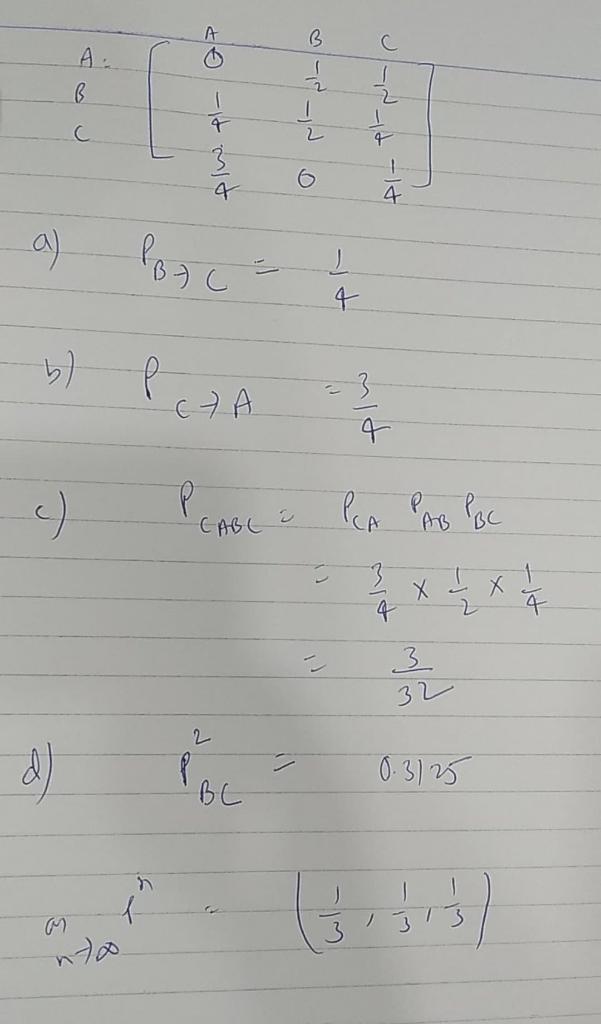 A B C
A: 0 1/2 1/2
B 1/4 1/2 1/4
C 3/4 0 1/4
a) P B→C = 1/4
b) P C→A = 3/4
c) P CABC = P CA P AB P BC
= 3/4 × 1/2 × 1/4
= 3/32
d) P² BC = 0.3125
n→∞ Pⁿ = (1/3, 1/3, 1/3)